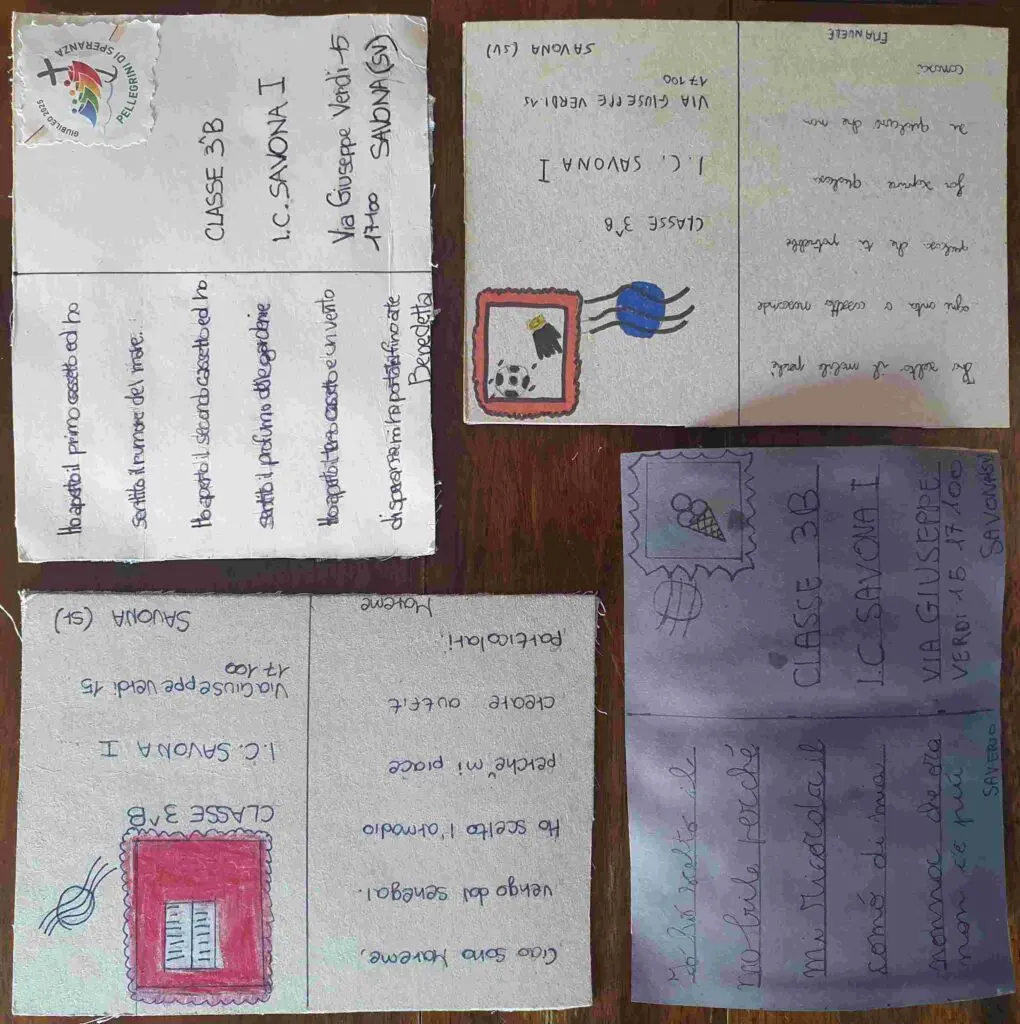 Ho aperto il primo cassetto ed ho
sentito il rumore del mare.
Ho aperto il secondo cassetto ed ho
sentito il profumo delle gardenie
Ho aperto il terzo cassetto e un vento
di speranza mi ha portato fino a te
Benedetta
GIUBILEO 2025
PELLEGRINI DI SPERANZA
CLASSE 3^B
I.C. SAVONA I
Via Giuseppe Verdi-15
17100 SAVONA (SV)
Ho scelto il mobile perché
ogni anta o cassetto nasconde
qualcosa che ti potrebbe
far sapere qualcosa
su qualcuno che non
conosci
EMANUELE
CLASSE 3^B
I.C. SAVONA I
VIA GIUSEPPE VERDI 15
17100
SAVONA (SV)
Ciao sono Mareme,
vengo dal senegal.
Ho scelto l'armadio
perche mi piace
creare outfit
particolari.
Mareme
CLASSE 3^B
I.C. SAVONA I
Via Giuseppe Verdi 15
17100
SAVONA (SV)
Io ho scelto il
mobile perché
mi ricorda il
comó di mia
nonna che ora
non ce piú
SAVERIO
CLASSE 3B
I.C. SAVONA I
VIA GIUSEPPE
VERDI 15 17100
SAVONA SV